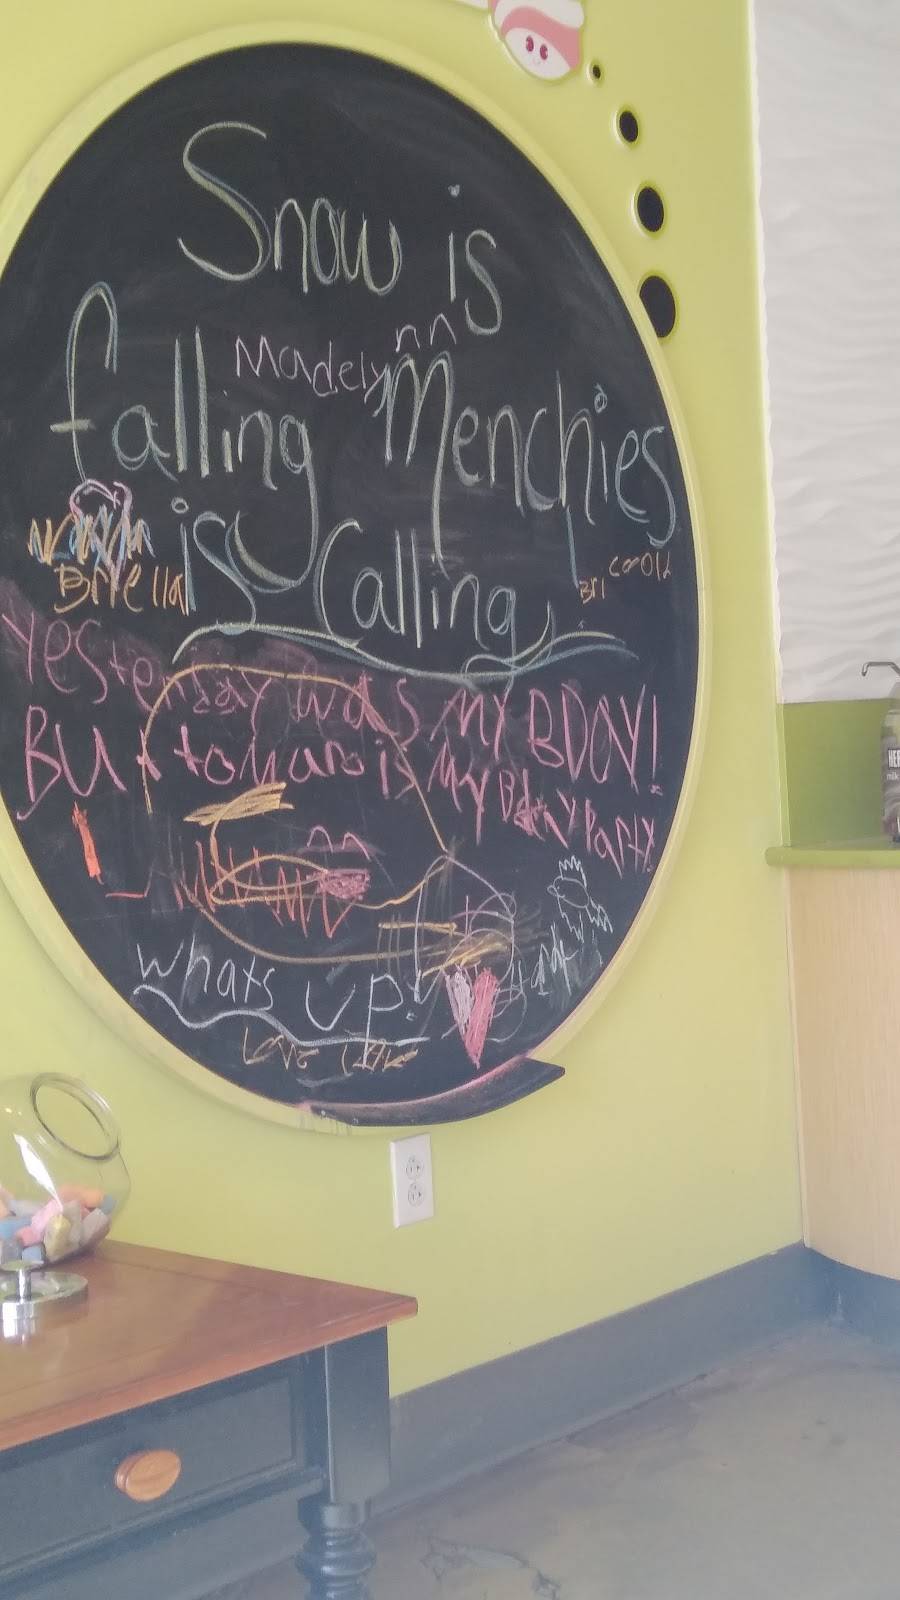 Snow is
Madelynn
falling Menchies
is Calling
Briella
Bri
Yesterday was my BDAY!
But tomaro is my Bday Party
whats up!
Love
HER
milk